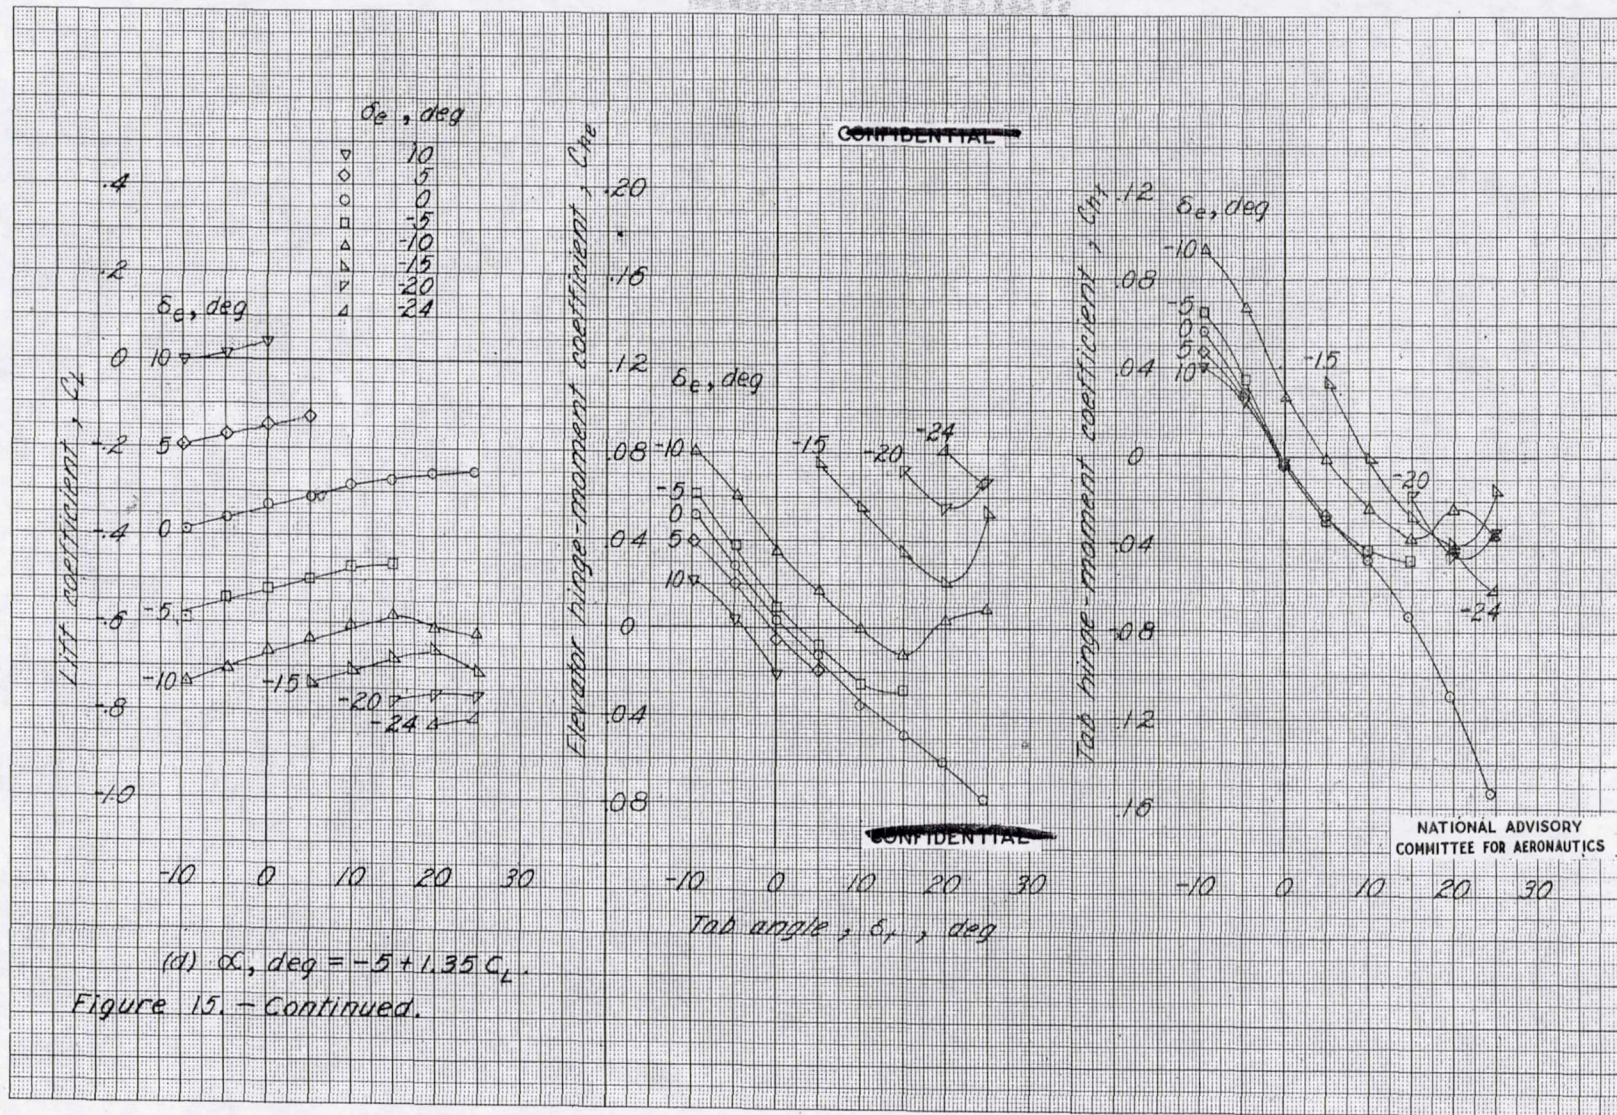 CONFIDENTIAL
δe, deg
10
5
0
-5
-10
-15
-20
-24
Lift coefficient, CL
.4
.2
0
-.2
-.4
-.6
-.8
-1.0
δe, deg
10
5
0
-5
-10
-15
-20
-24
-10 0 10 20 30
Elevator hinge-moment coefficient, Che
.20
.16
.12
.08
.04
0
.04
.08
δe, deg
-10
-5
0
5
10
-15
-20
-24
-10 0 10 20 30
Tab hinge-moment coefficient, Cht
.12
.08
.04
0
-.04
-.08
-.12
-.16
δe, deg
-10
-5
0
5
10
-15
-20
-24
-10 0 10 20 30
Tab angle, δt, deg
CONFIDENTIAL
NATIONAL ADVISORY
COMMITTEE FOR AERONAUTICS
(d) α, deg = -5 + 1.35 CL.
Figure 15. - Continued.